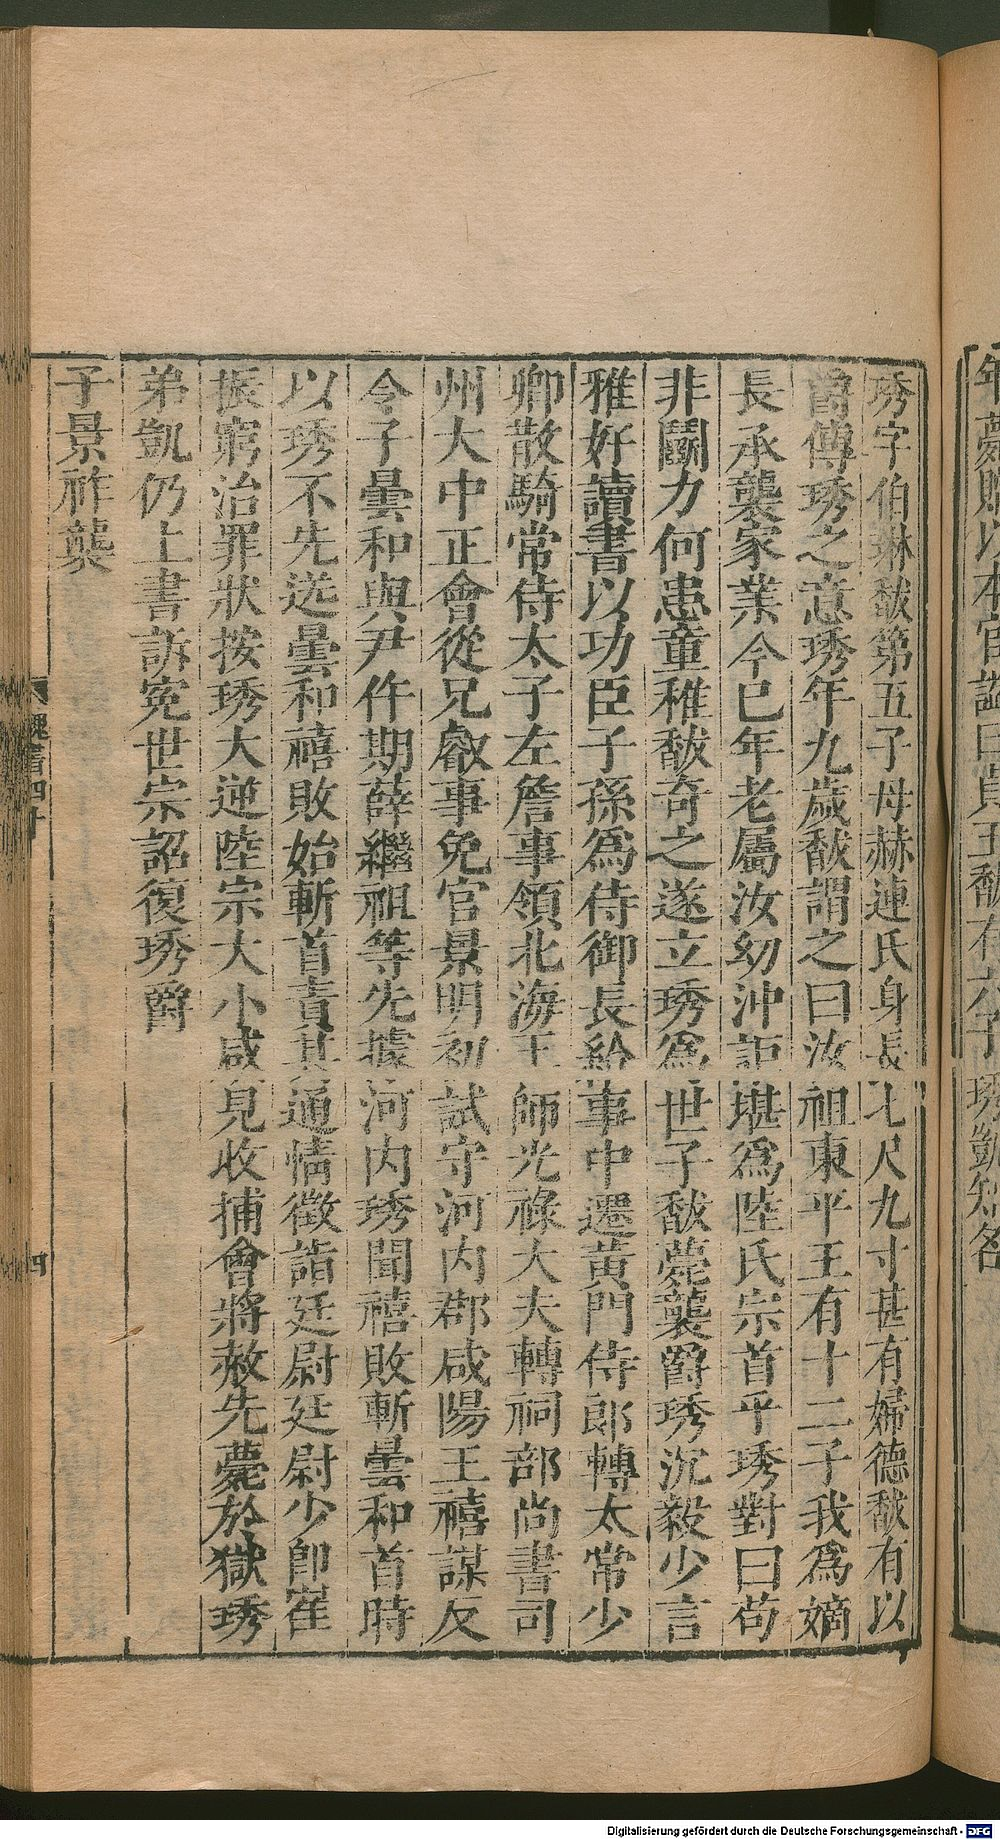 年薨贈以本官諡曰貞王馛有六子琇凱知名
琇字伯琳馛第五子母赫連氏身長七尺九寸甚有婦德馛有以
爵傳琇之意琇年九歲馛謂之曰汝祖東平王有十二子我爲嫡
長承襲家業今已年老屬汝幼沖詎堪爲陸氏宗首乎琇對曰苟
非鬭力何患童稚馛奇之遂立琇爲世子馛薨襲爵琇沉毅少言
雅好讀書以功臣子孫爲侍御長給事中遷黃門侍郎轉太常少
卿散騎常侍太子左詹事領北海王師光祿大夫轉祠部尚書司
州大中正會從兄叡事免官景明初試守河内郡咸陽王禧謀反
令子曇和與尹仵期薛繼祖等先據河内琇聞禧敗斬曇和首時
以琇不先送曇和禧敗始斬首責其通情徵詣廷尉廷尉少卿崔
振窮治罪狀按琇大逆陸宗大小咸見收捕會將赦先薨於獄琇
弟凱仍上書訴寃世宗詔復琇爵
子景祚襲
魏書四十
四
Digitalisierung gefördert durch die Deutsche Forschungsgemeinschaft - DFG